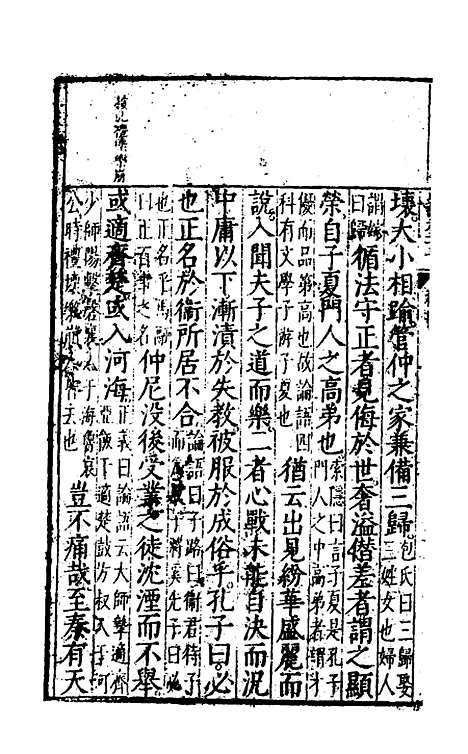 壞大小相踰管仲之家兼備三歸包氏曰三歸娶三姓女也婦人
謂嫁曰歸循法守正者見侮於世奢溢僭差者謂之顯
榮自子夏門人之高弟也索隱曰言子夏是孔子門人之中高弟者謂才
優而品第高也故論語四科有文學子游子夏也猶云出見紛華盛麗而
說入聞夫子之道而樂二者心戰未能自決而況
中庸以下漸漬於失教被服於成俗乎孔子曰必
也正名於衞所居不合論語曰子路曰衞君待子而為政子將奚先子曰必
也正名乎馬融曰正百事之名仲尼没後受業之徒沈湮而不舉
或適齊楚或入河海正義曰論語云大師摯適齊亞飯干適楚鼓方叔入于河
少師陽擊磬襄入于海魯哀公時禮壞樂崩人皆去也豈不痛哉至秦有天
按此禮壞樂崩